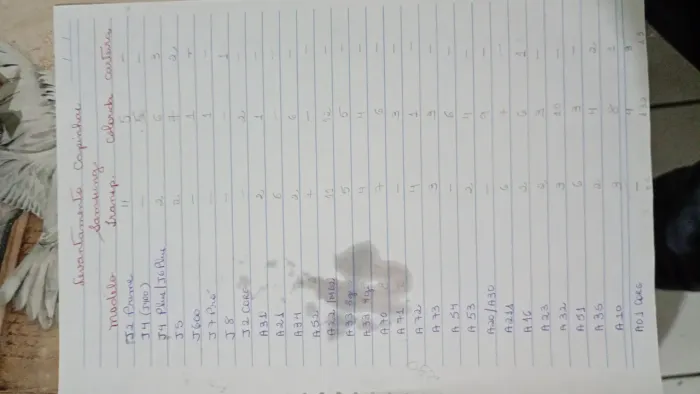 Levantamento Capinhas
Samsung
Modelo Transp. Colorida Carteira
J2 Prime 4 5 -
J4 - 5 -
J4 Plus/J6 Plus 2 6 3
J5 2 7 2
J600 - 1 -
J7 Pro - 1 -
J8 - - 1
J2 Core - 2 -
A31 2 1 -
A21 6 - -
A34 2 6 -
A52 - -
A22 12 -
A33 5g 5 5 -
A53 4 4 -
A70 7 6 -
A71 - 3 -
A72 4 1 -
A73 3 3 -
A54 - 6 -
A53 2 4 -
A20/A30 - 9 -
A21s 6 -
A16 2 6
A23 2 3 -
A32 3 -
A51 6 3 -
A36 2 4 2
A10 3 8
A01 Core - 4 3